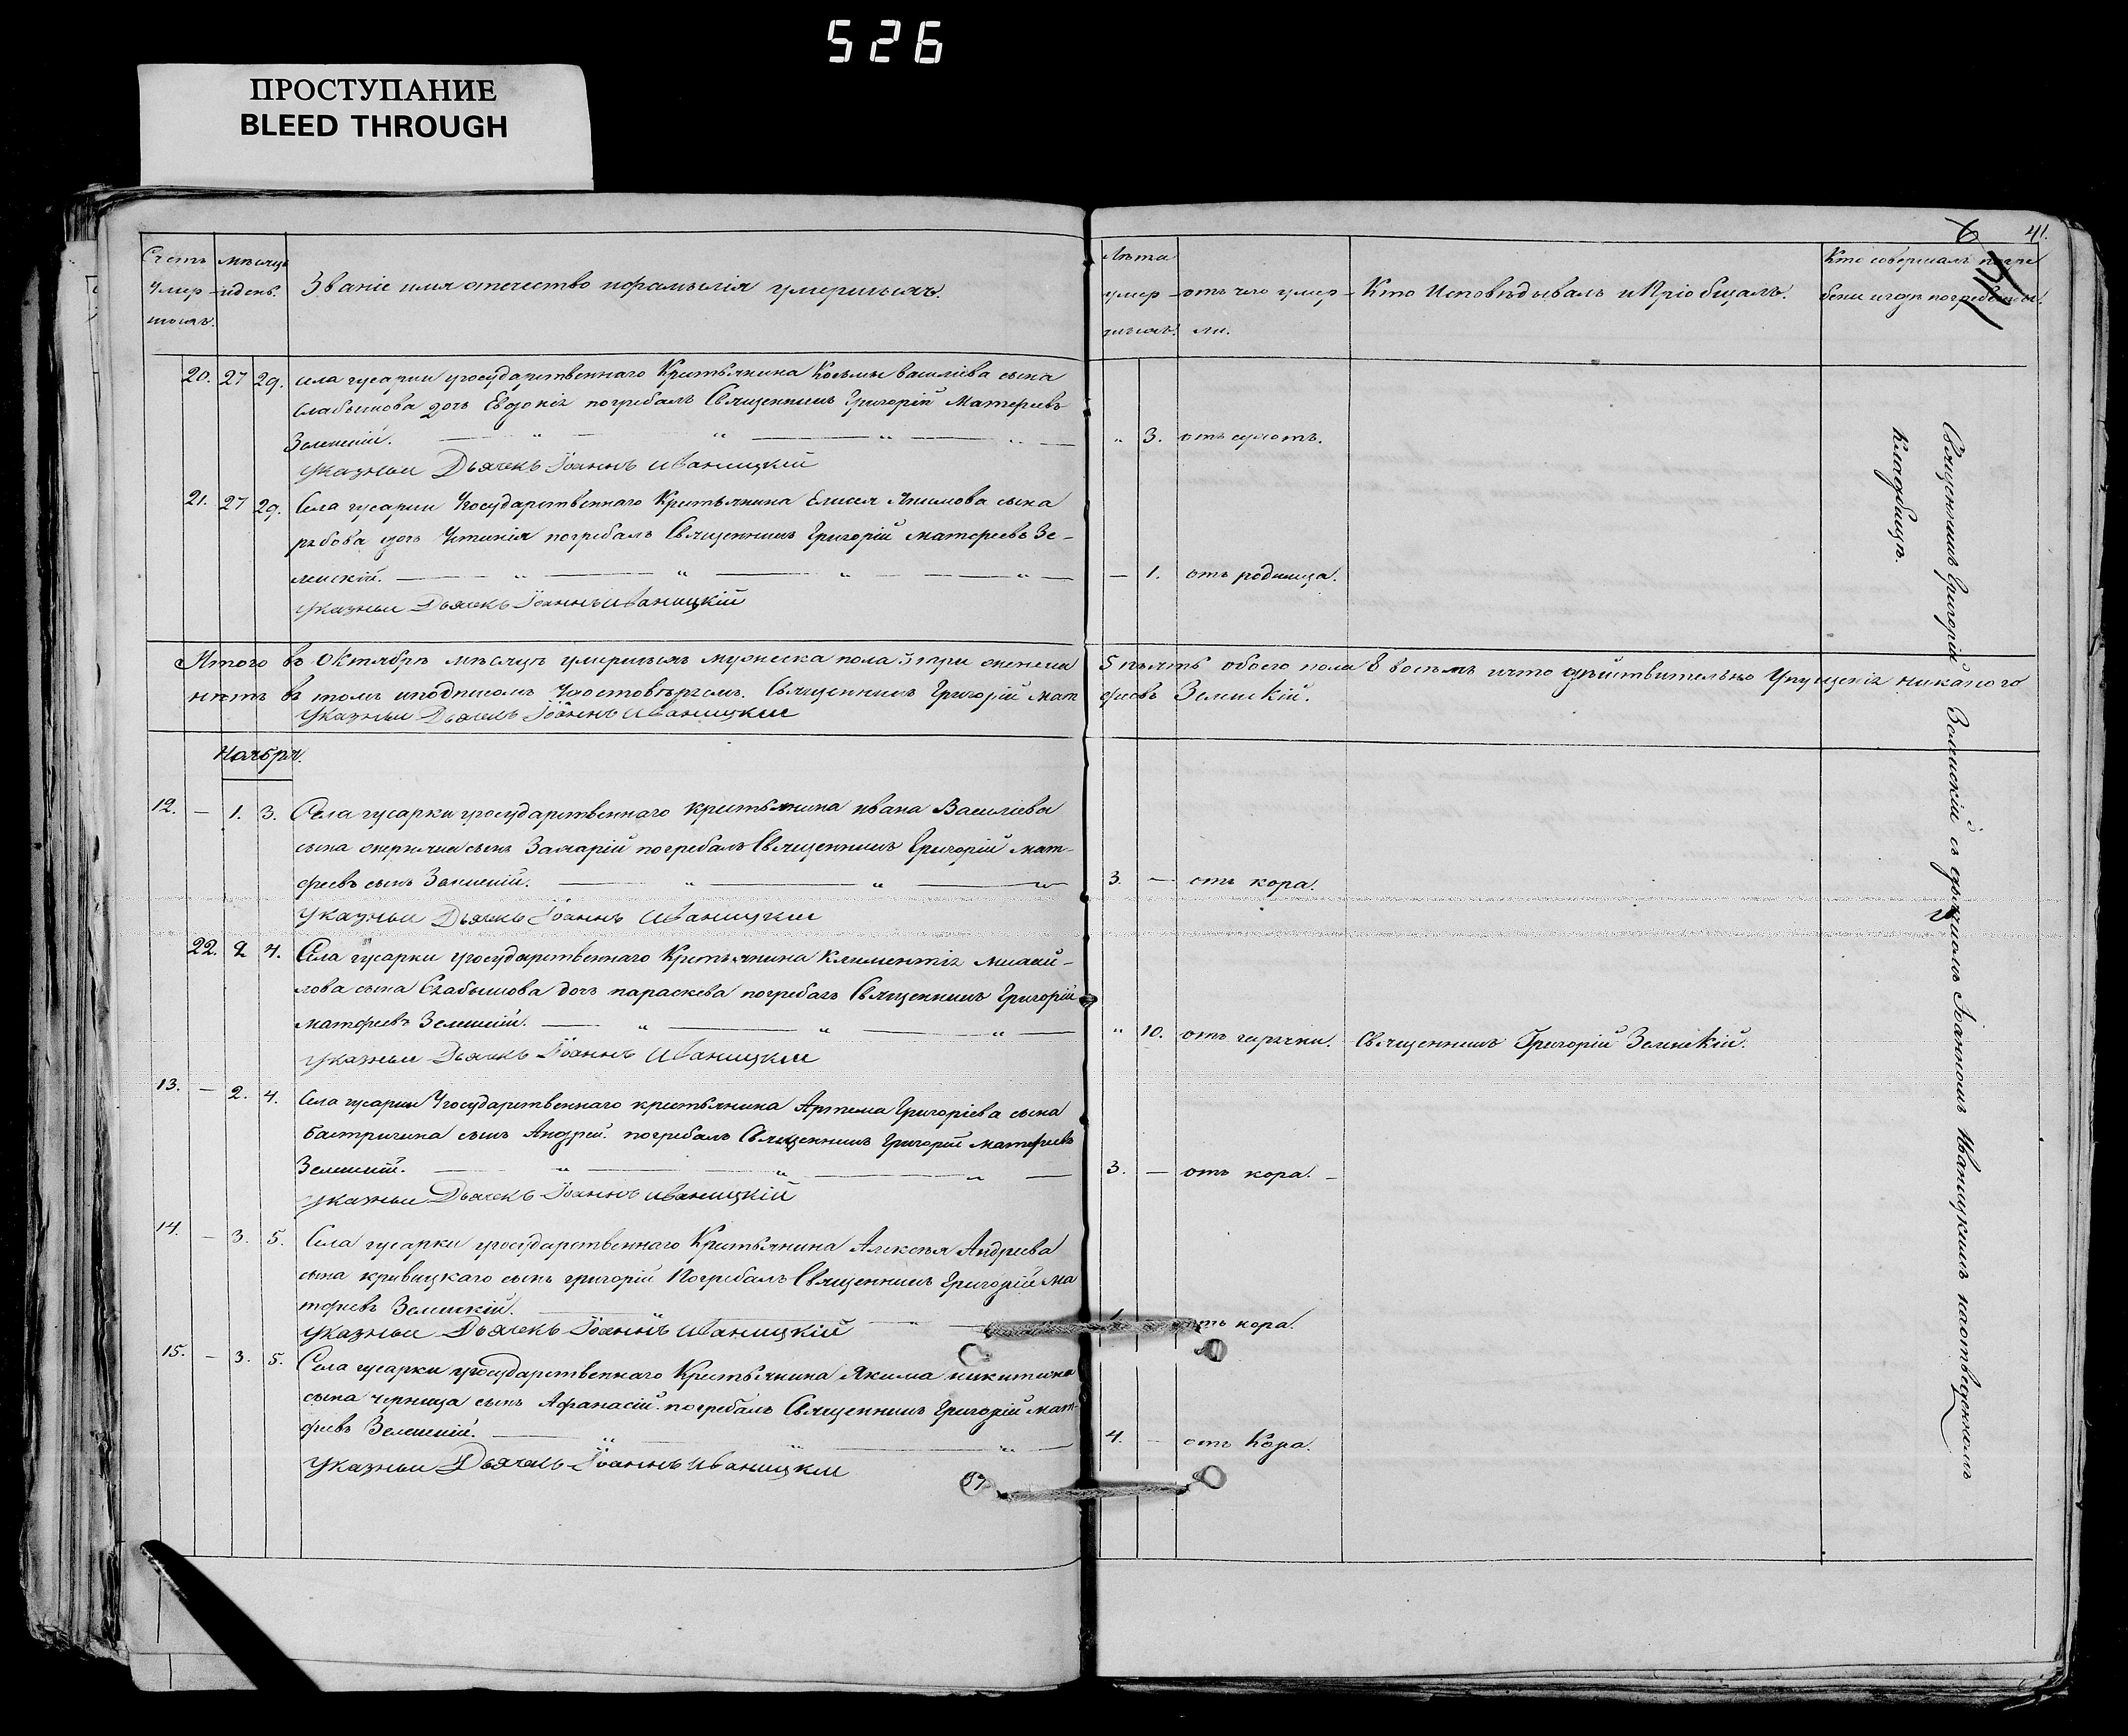 526
ПРОСТУПАНИЕ
BLEED THROUGH
41.
Счетъ мѣсяцъ
умер- и день.
шихъ.
Званіе имя отечество и фамилія умершихъ.
Лѣта
умер-
шихъ.
отъ чего умер-
ли.
Кто Исповѣдывалъ и Пріобщалъ.
Кто совершалъ погре
бени и гдѣ погребены.
20. 27 29. села гусарки государственнаго Крестьянина Козьмы василіева сына
Слабынова дочь Евдокія погребалъ Священникъ Григорій Матфеевъ
Зелинскій. " 3. отъ сухотъ.
Указный Дьячекъ Іоаннъ Иваницкій
21. 27 29. Села гусарки Государственнаго Крестьянина Елисея Якимова сына
рябова дочь Устинія погребалъ Священникъ Григорій матфеевъ Зе-
линскій. — 1. отъ родимца.
Указный Дьячекъ Іоаннъ Иваницкій
Итого въ Октябрѣ мѣсяцѣ умершихъ мужеска пола 3 три женска 5 пьять обоего пола 8 восемъ и что дѣйствительно Упущенія никакого
нѣтъ въ томъ и подписомъ Удостовѣряемъ. Священникъ Григорій Мат фѣевъ Зелинскій.
Указный Дьячекъ Іоаннъ Иваницкій
Ноября.
12. — 1. 3. Села гусарки государственнаго крестьянина ивана Василіева
сына сынъ Захарій погребалъ Священникъ Григорій мат-
фѣевъ сынъ Зелинскій. 3. — отъ кора.
Указный Дьячекъ Іоаннъ Иваницкій
22. 2 4. Села гусарки государственнаго Крестьянина Климентія михай-
лова сына Слабынова дочь параскева погребалъ Священникъ Григорій
матфеевъ Зелинскій. " 10. отъ горячки. Священникъ Григорій Зелинскій.
Указный Дьячекъ Іоаннъ Иваницкій
13. — 2. 4. Села гусарки Государственнаго крестьянина Артема Григоріева сына
Бастричина сынъ Андрей. погребалъ Священникъ Григорій матфеевъ
Зелинскій. 3. — отъ кора. —
Указный Дьячекъ Іоаннъ Иваницкій
14. — 3. 5. Села гусарки государственнаго Крестьянина Алексѣя Андреева
сына кривицкаго сынъ григорій Погребалъ Священникъ Григорій Ма
тфеевъ Зелинскій. 1. отъ кора.
Указный Дьячекъ Іоаннъ Иваницкій
15. — 3. 5. Села гусарки государственнаго Крестьянина Якима никитина
сына черница сынъ Афанасій погребалъ Священникъ Григорій Мат-
фѣевъ Зелинскій. 4. — отъ Кора.
Указный Дьячекъ Іоаннъ Иваницкій
Священникъ Григорій Зелинскій съ дьячкомъ Іоанномъ Иваницкимъ на отведенномъ
кладбищѣ.